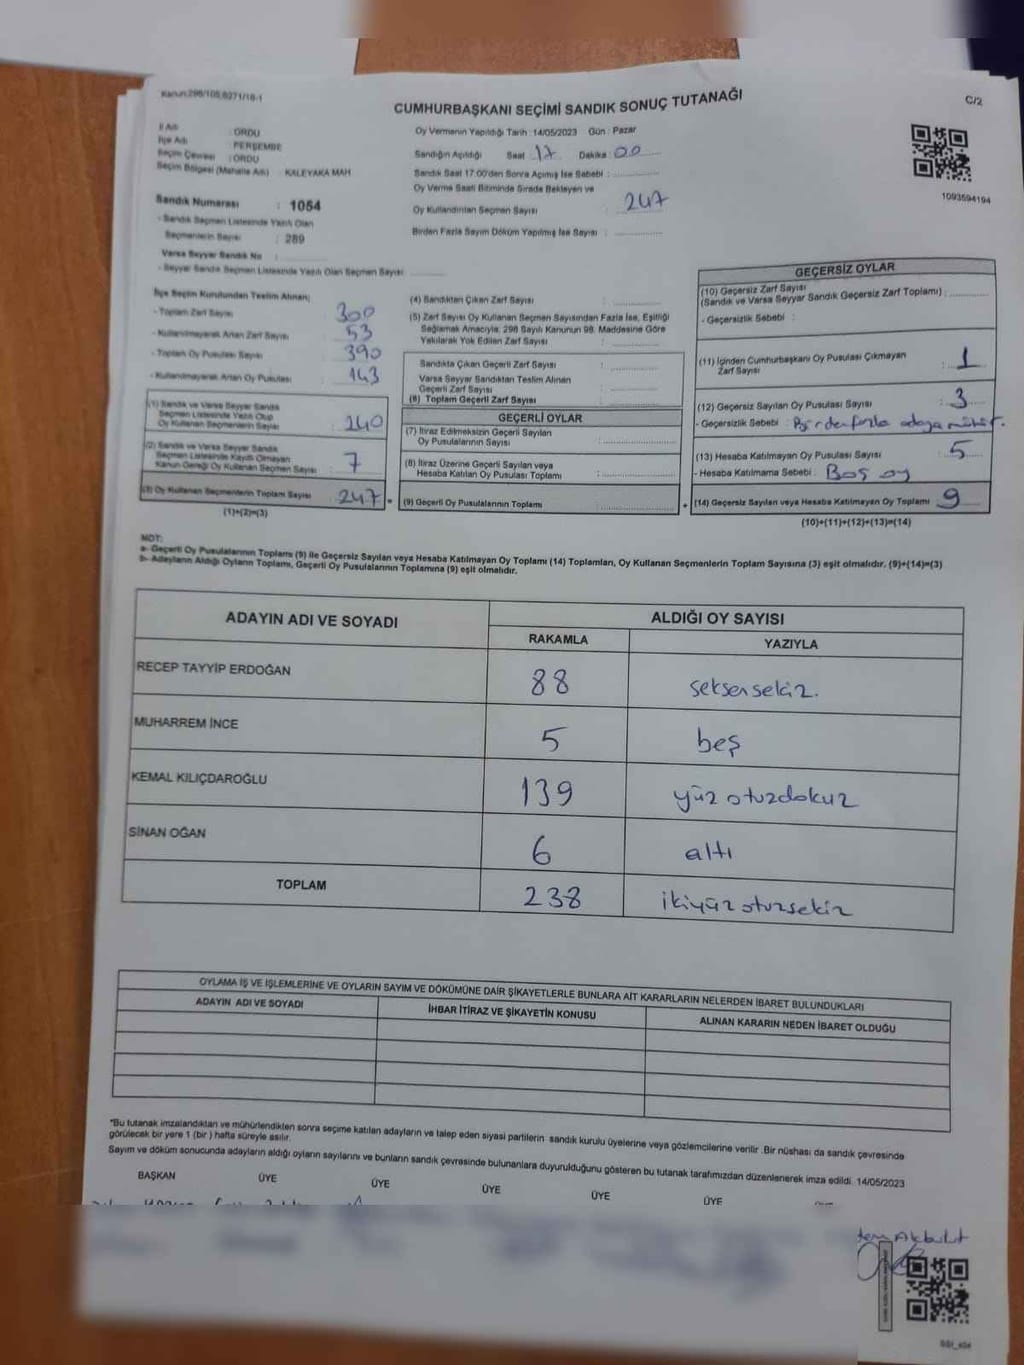 Kanun:298/105,6271/18-1
CUMHURBAŞKANI SEÇİMİ SANDIK SONUÇ TUTANAĞI
C/2
İl Adı : ORDU
İlçe Adı : PERŞEMBE
Seçim Çevresi : ORDU
Seçim Bölgesi (Mahalle Adı) : KALEYAKA MAH
Sandık Numarası : 1054
- Sandık Seçmen Listesinde Yazılı Olan
Seçmenlerin Sayısı : 289
Varsa Seyyar Sandık No :
- Seyyar Sandık Seçmen Listesinde Yazılı Olan Seçmen Sayısı :
Oy Vermenin Yapıldığı Tarih : 14/05/2023 Gün : Pazar
Sandığın Açıldığı Saat : 17 Dakika : 00
Sandık Saat 17:00'den Sonra Açımış İse Sebebi :
Oy Verme Saati Bitiminde Sırada Bekleyen ve
Oy Kullandırılan Seçmen Sayısı : 247
Birden Fazla Sayım Döküm Yapılmış İse Sayısı :
1093594194
İlçe Seçim Kurulundan Teslim Alınan;
- Toplam Zarf Sayısı : 300
- Kullanılmayarak Artan Zarf Sayısı : 53
- Toplam Oy Pusulası Sayısı : 390
- Kullanılmayarak Artan Oy Pusulası : 143
(1) Sandık ve Varsa Seyyar Sandık
Seçmen Listesinde Yazılı Olup
Oy Kullanan Seçmenlerin Sayısı : 240
(2) Sandık ve Varsa Seyyar Sandık
Seçmen Listesinde Kayıtlı Olmayan
Kanun Gereği Oy Kullanan Seçmen Sayısı : 7
(3) Oy Kullanan Seçmenlerin Toplam Sayısı : 247
(1)+(2)=(3)
=
(4) Sandıktan Çıkan Zarf Sayısı :
(5) Zarf Sayısı Oy Kullanan Seçmen Sayısından Fazla İse, Eşitliği
Sağlamak Amacıyla; 298 Sayılı Kanunun 98. Maddesine Göre
Yakılarak Yok Edilen Zarf Sayısı :
Sandıkta Çıkan Geçerli Zarf Sayısı :
Varsa Seyyar Sandıktan Teslim Alınan
Geçerli Zarf Sayısı :
(6) Toplam Geçerli Zarf Sayısı :
GEÇERLİ OYLAR
(7) İtiraz Edilmeksizin Geçerli Sayılan
Oy Pusulalarının Sayısı :
(8) İtiraz Üzerine Geçerli Sayılan veya
Hesaba Katılan Oy Pusulası Toplamı :
(9) Geçerli Oy Pusulalarının Toplamı :
+
GEÇERSİZ OYLAR
(10) Geçersiz Zarf Sayısı
(Sandık ve Varsa Seyyar Sandık Geçersiz Zarf Toplamı) :
- Geçersizlik Sebebi :
(11) İçinden Cumhurbaşkanı Oy Pusulası Çıkmayan
Zarf Sayısı : 1
(12) Geçersiz Sayılan Oy Pusulası Sayısı : 3
- Geçersizlik Sebebi : Birden fazla adaya mühür.
(13) Hesaba Katılmayan Oy Pusulası Sayısı : 5
- Hesaba Katılmama Sebebi : Boş oy
(14) Geçersiz Sayılan veya Hesaba Katılmayan Oy Toplamı : 9
(10)+(11)+(12)+(13)=(14)
NOT:
a- Geçerli Oy Pusulalarının Toplamı (9) ile Geçersiz Sayılan veya Hesaba Katılmayan Oy Toplamı (14) Toplamları, Oy Kullanan Seçmenlerin Toplam Sayısına (3) eşit olmalıdır. (9)+(14)=(3)
b- Adayların Aldığı Oyların Toplamı, Geçerli Oy Pusulalarının Toplamına (9) eşit olmalıdır.
ADAYIN ADI VE SOYADI ALDIĞI OY SAYISI
RAKAMLA YAZIYLA
RECEP TAYYİP ERDOĞAN 88 seksensekiz.
MUHARREM İNCE 5 beş
KEMAL KILIÇDAROĞLU 139 yüz otuzdokuz
SİNAN OĞAN 6 altı
TOPLAM 238 ikiyüz otuzsekiz
OYLAMA İŞ VE İŞLEMLERİNE VE OYLARIN SAYIM VE DÖKÜMÜNE DAİR ŞİKAYETLERLE BUNLARA AİT KARARLARIN NELERDEN İBARET BULUNDUKLARI
ADAYIN ADI VE SOYADI İHBAR İTİRAZ VE ŞİKAYETİN KONUSU ALINAN KARARIN NEDEN İBARET OLDUĞU
*Bu tutanak imzalandıktan ve mühürlendikten sonra seçime katılan adayların ve talep eden siyasi partilerin sandık kurulu üyelerine veya gözlemcilerine verilir .Bir nüshası da sandık çevresinde
görülecek bir yere 1 (bir ) hafta süreyle asılır.
Sayım ve döküm sonucunda adayların aldığı oyların sayılarını ve bunların sandık çevresinde bulunanlara duyurulduğunu gösteren bu tutanak tarafımızdan düzenlenerek imza edildi. 14/05/2023
BAŞKAN ÜYE ÜYE ÜYE ÜYE ÜYE
Akbulut